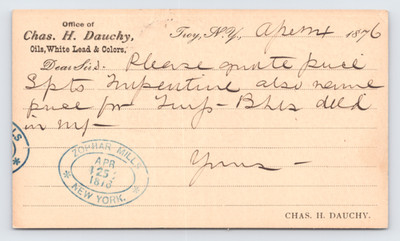 Office of
Chas. H. Dauchy,
Oils, White Lead & Colors,
Troy, N.Y., 1876
Dear Sir: Please quote price
Spts Turpentine also name
price for Turps- Bbls deld
in NY-
Yours-
ZOPHAR MILLS
APR
25
1876
NEW YORK.
LLS
CHAS. H. DAUCHY.